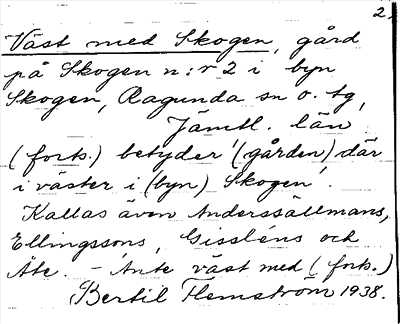 2.
Väst med Skogen, gård
på Skogen n:r 2 i byn
Skogen, Ragunda sn o. tg,
Jämtl. län
(forts.) betyder '(gården) där
i väster i (byn) Skogen'.
Kallas även Anderssällmans,
Ellingssons, Gissléns och
Åte. - Ante väst med (forts.)
Bertil Flemström 1938.